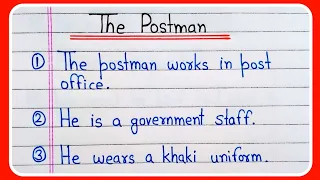 The Postman
① The postman works in post
office.
② He is a government staff.
③ He wears a khaki uniform.